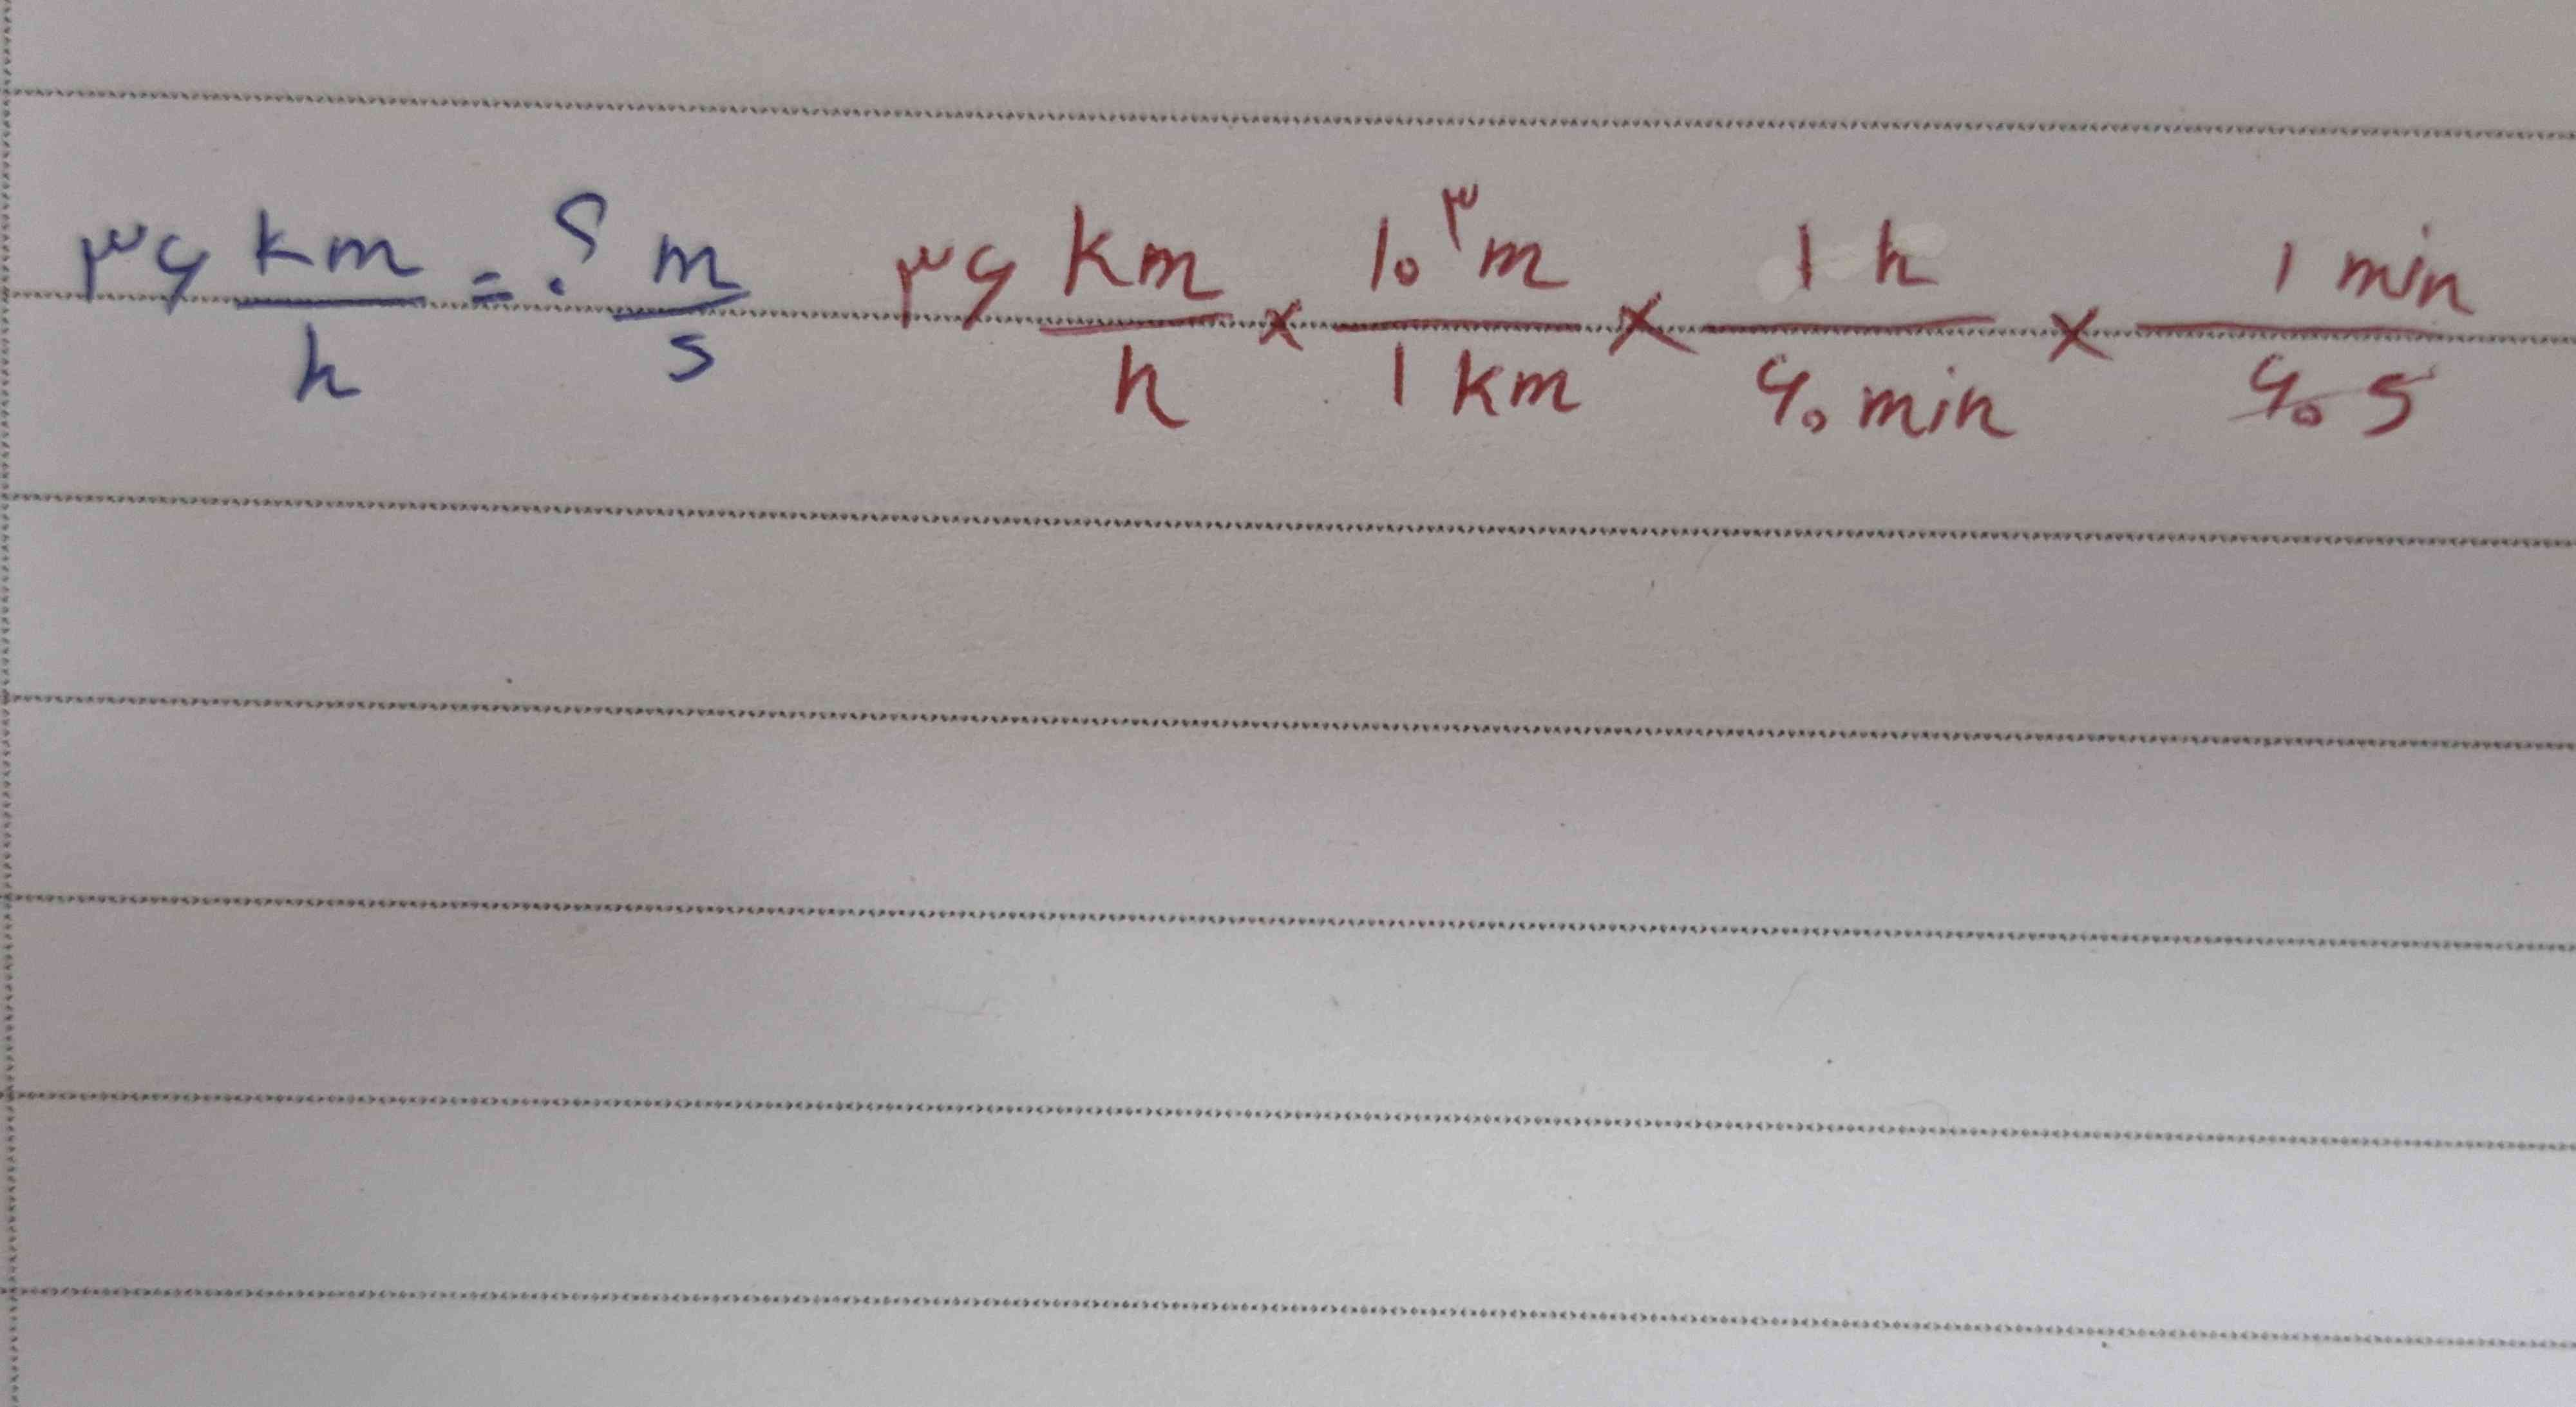 ۳۶ km/h = ? m/s   ۳۶ km/h × ۱۰^۳ m / ۱ km × ۱ h / ۶۰ min × ۱ min / ۶۰ s